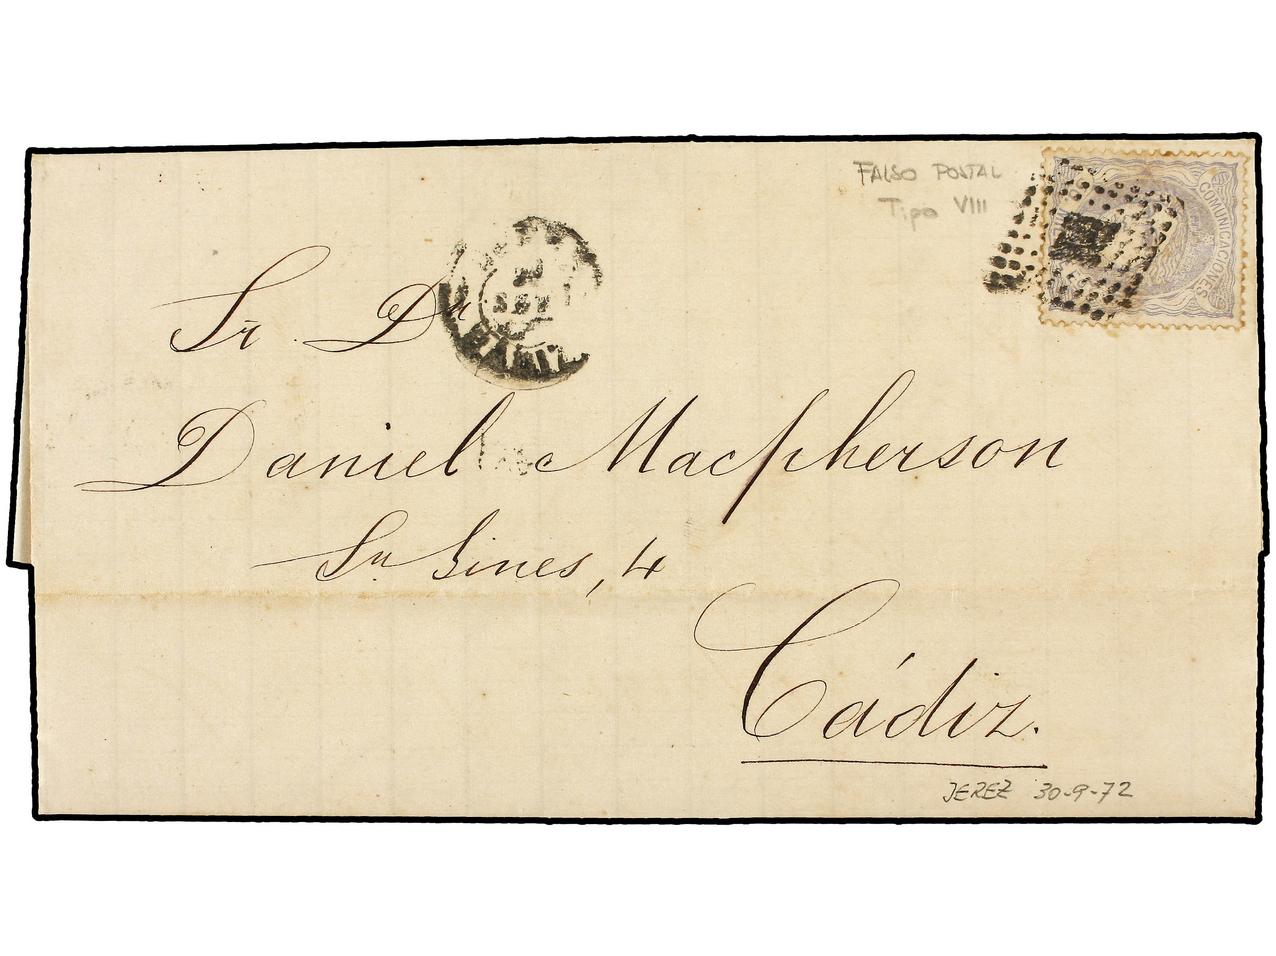 FALSO POSTAL
Tipo VIII
COMUNICACIONES
30
SET
Sr. Dn
Daniel Macpherson
Sn Gines, 4
Cádiz.
JEREZ 30-9-72